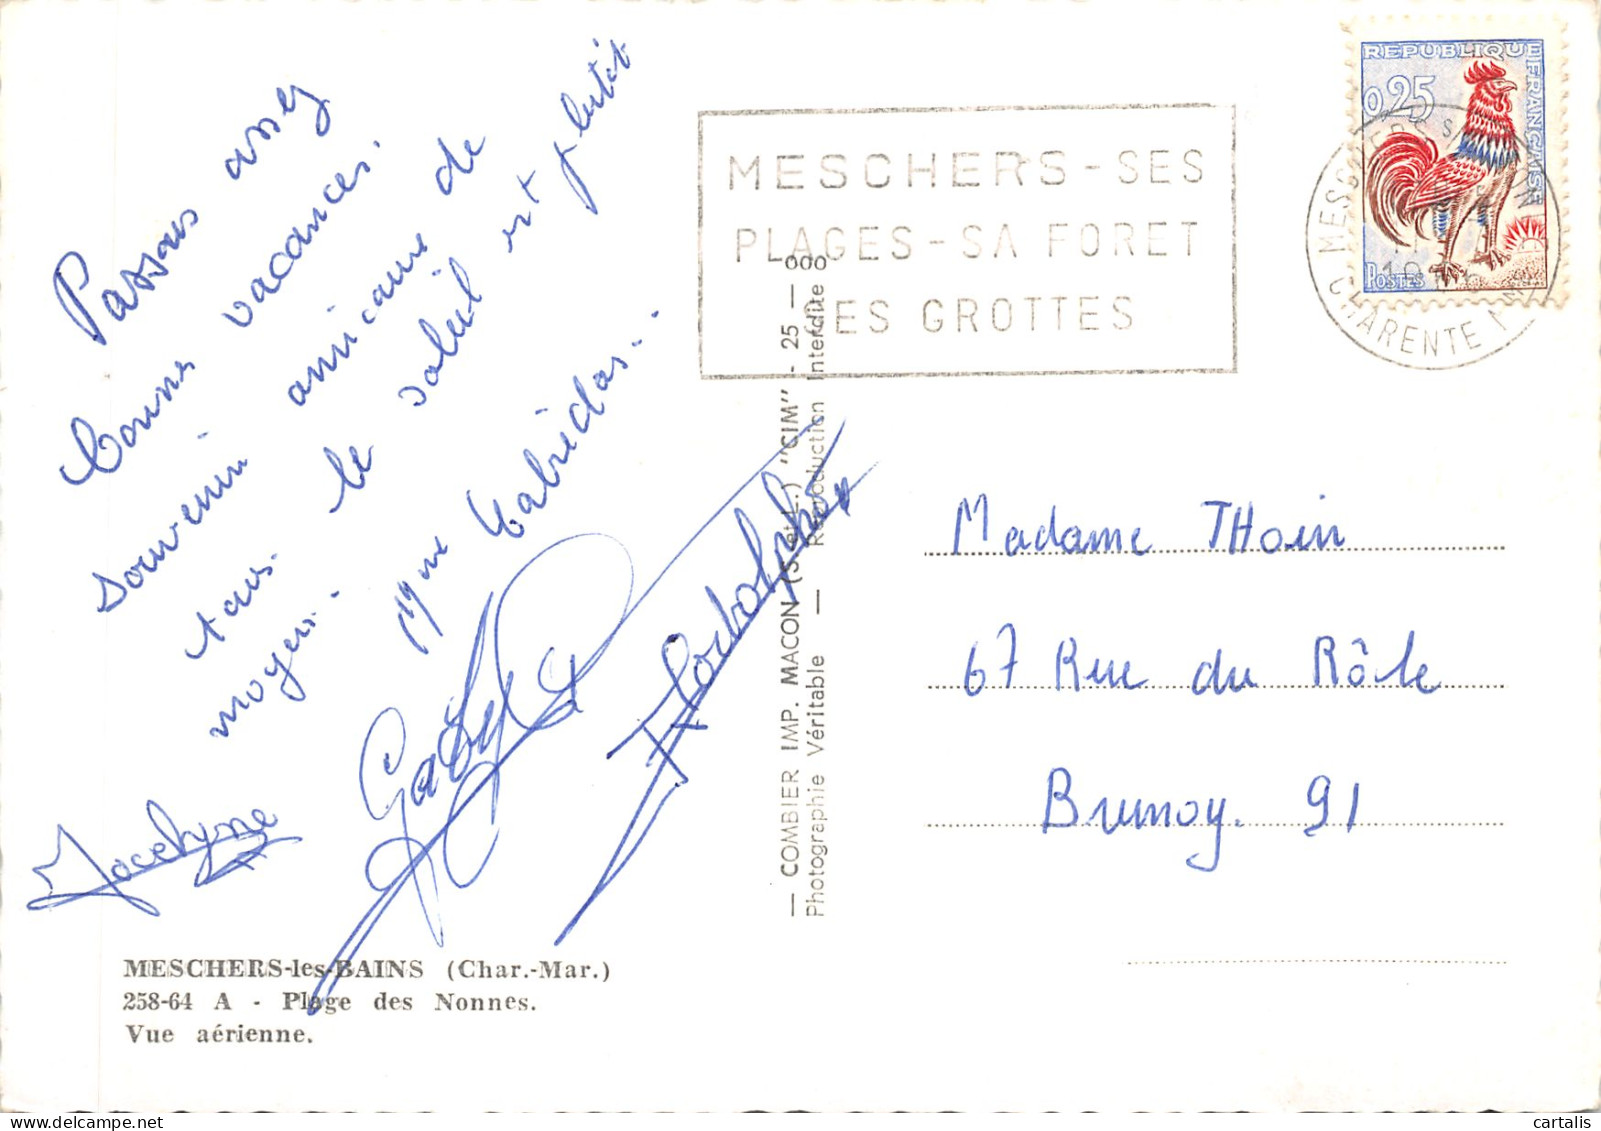 Passons assez
bonnes vacances.
souvenir amicaux de
tous. le soleil est plutôt
moyen.
Mme
Jocelyne
Gaby
Rodolphe
MESCHERS-les-BAINS (Char.-Mar.)
258-64 A - Plage des Nonnes.
Vue aérienne.
— COMBIER IMP. MACON (S.-et-L.) "CIM" - 25 — 000
Photographie Véritable — Reproduction Interdite
MESCHERS - SES
PLAGES - SA FORET
SES GROTTES
REPUBLIQUE
FRANÇAISE
0,25
POSTES
MESCHERS S
CHARENTE
Madame THoin
67 Rue du Rôle
Brunoy. 91
cartalis
www.delcampe.net